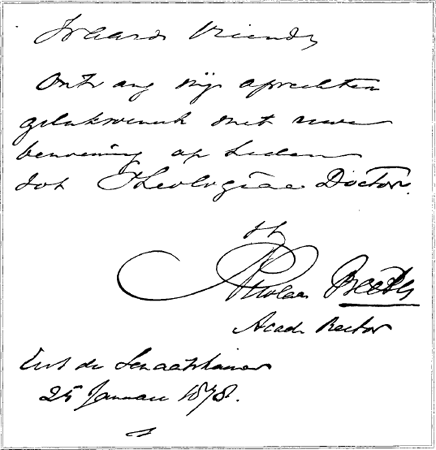 Waarde Vriend,
Ontvang mijn oprechten
gelukwensch met uwe
benoeming op heden
tot Theologiae Doctor.
Nicolaas Beets
Acad. Rector
Uit de Senaatskamer
25 Januari 1878.